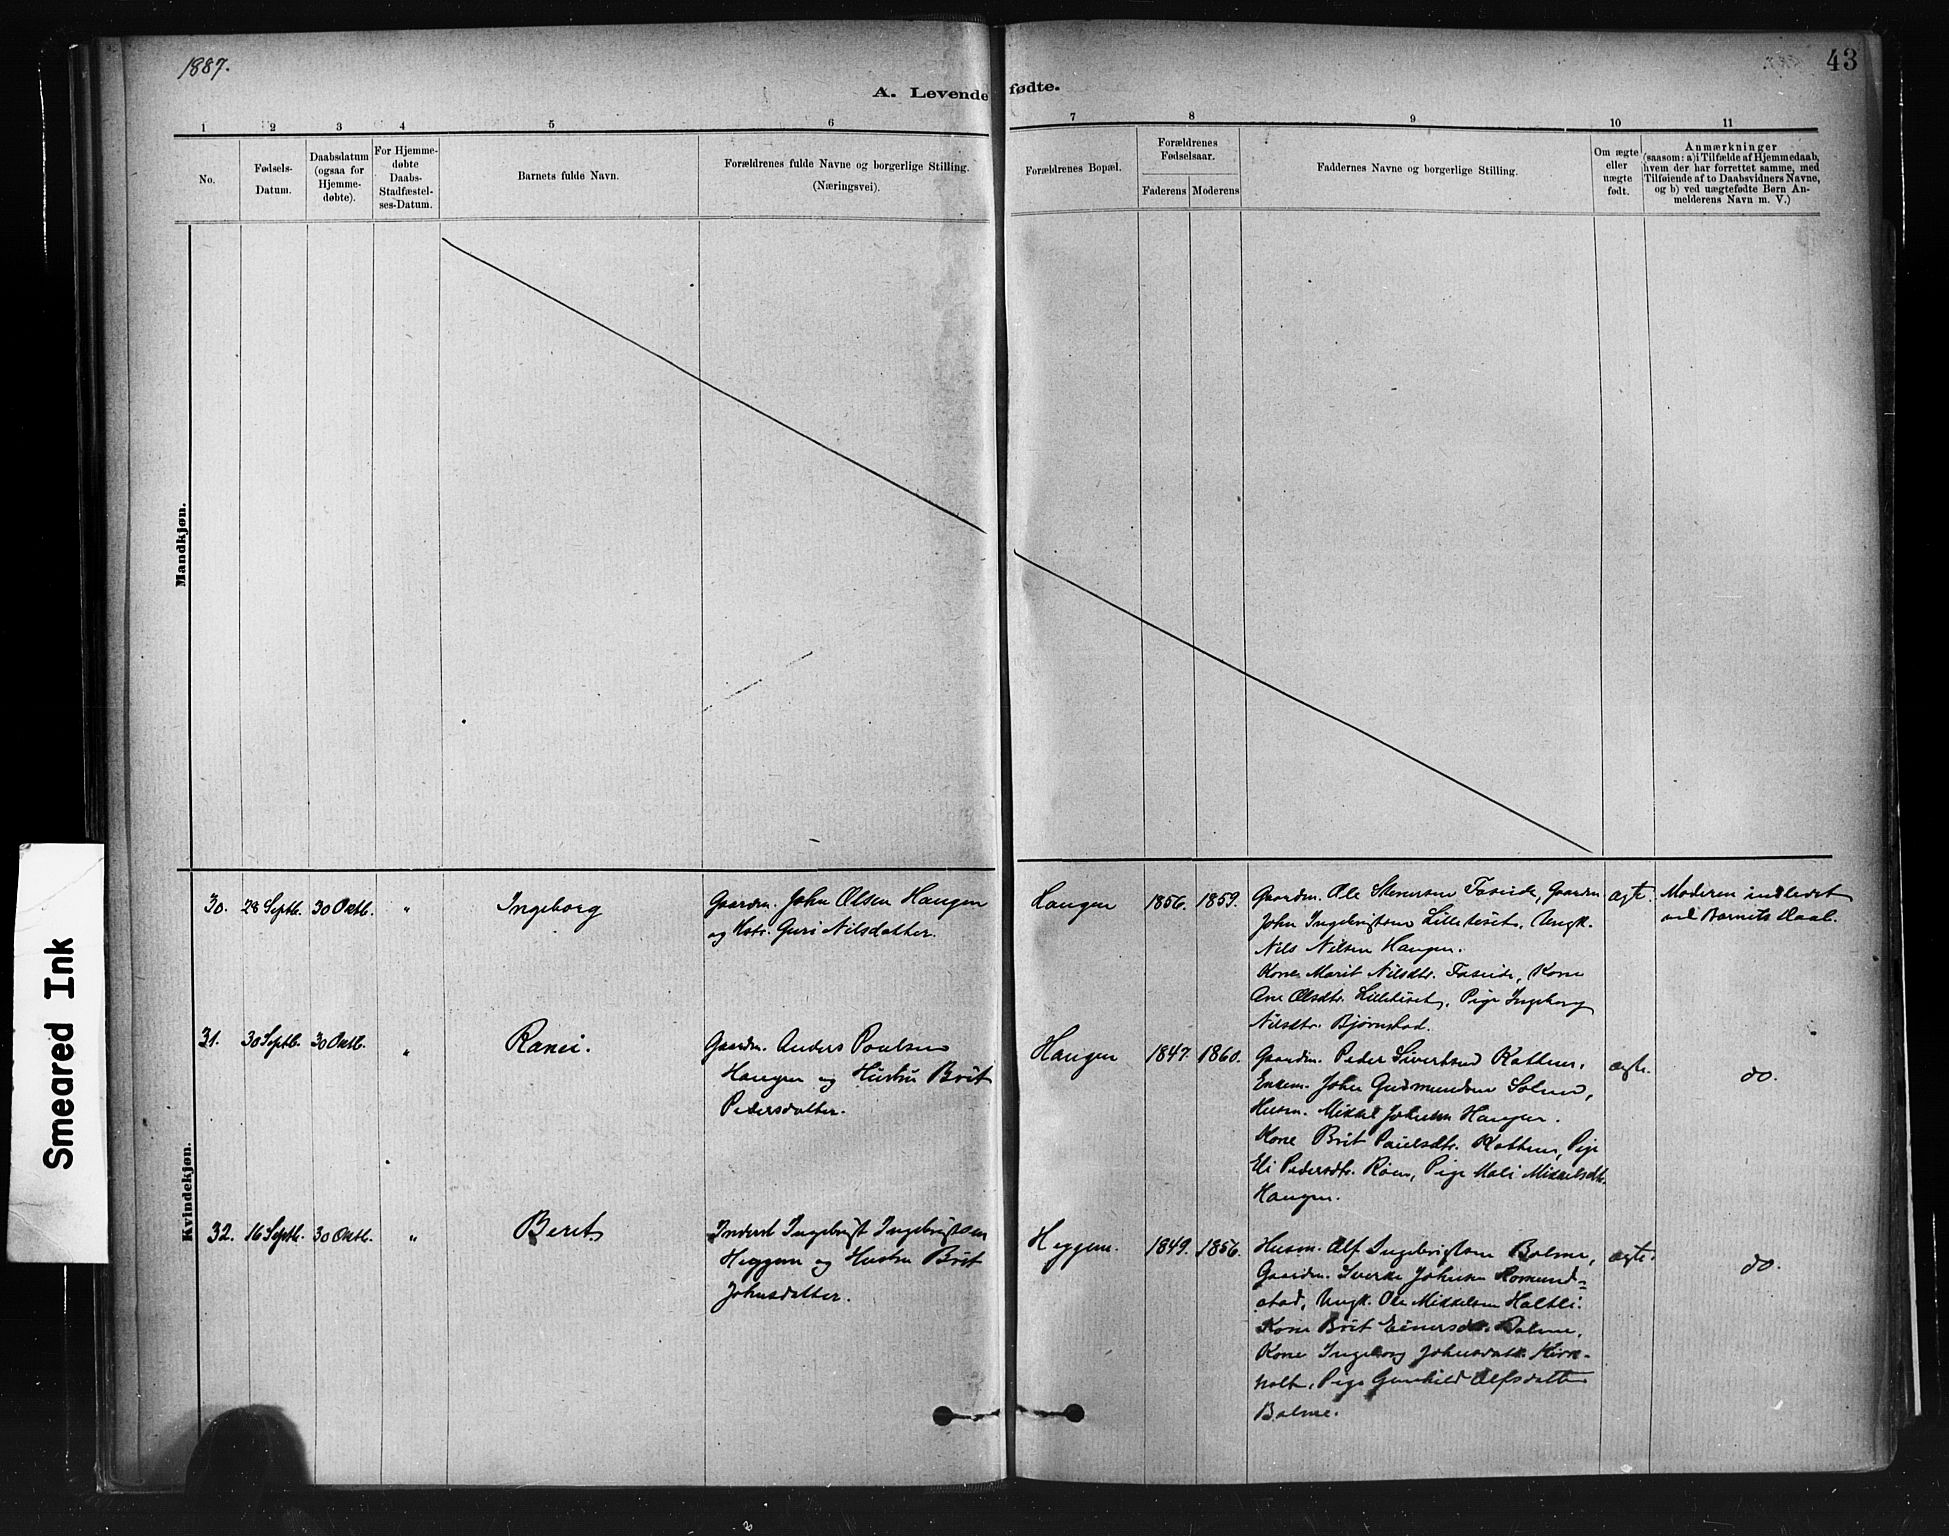 1887.
43
A. Levende fødte.
1 2 3 4 5 6 7 8 9 10 11
No.
Fødsels-
Datum.
Daabsdatum
(ogsaa for
Hjemme-
døbte).
For Hjemme-
døbte
Daabs-
Stadfæstel-
ses-Datum.
Barnets fulde Navn.
Forældrenes fulde Navne og borgerlige Stilling.
(Næringsvei).
Forældrenes Bopæl.
Forældrenes
Fødselsaar.
Faderens Moderens
Faddernes Navne og borgerlige Stilling.
Om ægte
eller
uægte
født.
Anmærkninger
(saasom: a) i Tilfælde af Hjemmedaab,
hvem der har forrettet samme, med
Tilføiende af to Daabsvidners Navne,
og b) ved uægtefødte Børn An-
melderens Navn m. V.)
Mandkjøn.
Kvindekjøn.
Smeared Ink
30. 28 Septb. 30 Oktb. " Ingeborg
Gaardm. John Olsen Haugen
og Hstr. Guri Nilsdatter.
Haugen 1856. 1859.
Gaardm. Ole Steversen Faseide, Gaardm
John Ingebrigtsen Lilletiset, Ungk.
Nils Nilsen Haugen.
Kone Marit Nilsdtr. Faseide, Kone
Ane Olsdtr. Lilletiset, Pige Ingeborg
Nilsdtr. Bjørnstad.
ægt.
Moderen indledet
ved Barnets Daab.
31. 30 Septb. 30 Oktb. " Ranei.
Gaardm. Anders Poulsen
Haugen og Hustru Brit
Pedersdatter.
Haugen 1847. 1860.
Gaardm. Peder Sivertsen
Enkem. John Gudmundsen
Husm. Mikkel Johnsen Haugen.
Kone Brit Paulsdtr. Pige
Eli Pedersdtr. Røen, Pige Mali Mikkelsdtr.
Haugen.
ægte.
do.
32. 16 Septb. 30 Oktb. " Beret
Inderst Ingebrigt Ingebrigtsen
Heggem og Hustru Brit
Johnsdatter.
Heggem. 1849. 1856.
Husm. Alf Ingebrigtsen Bolme,
Gaardm. Sverke Johnsen Romund-
stad, Ungk. Ole Mikkelsen Holtli.
Kone Brit Einersdtr. Bolme,
Kone Ingeborg Johnsdatter Kirk-
holt, Pige Gunhild Alfsdatter
Bolme.
ægte.
do.